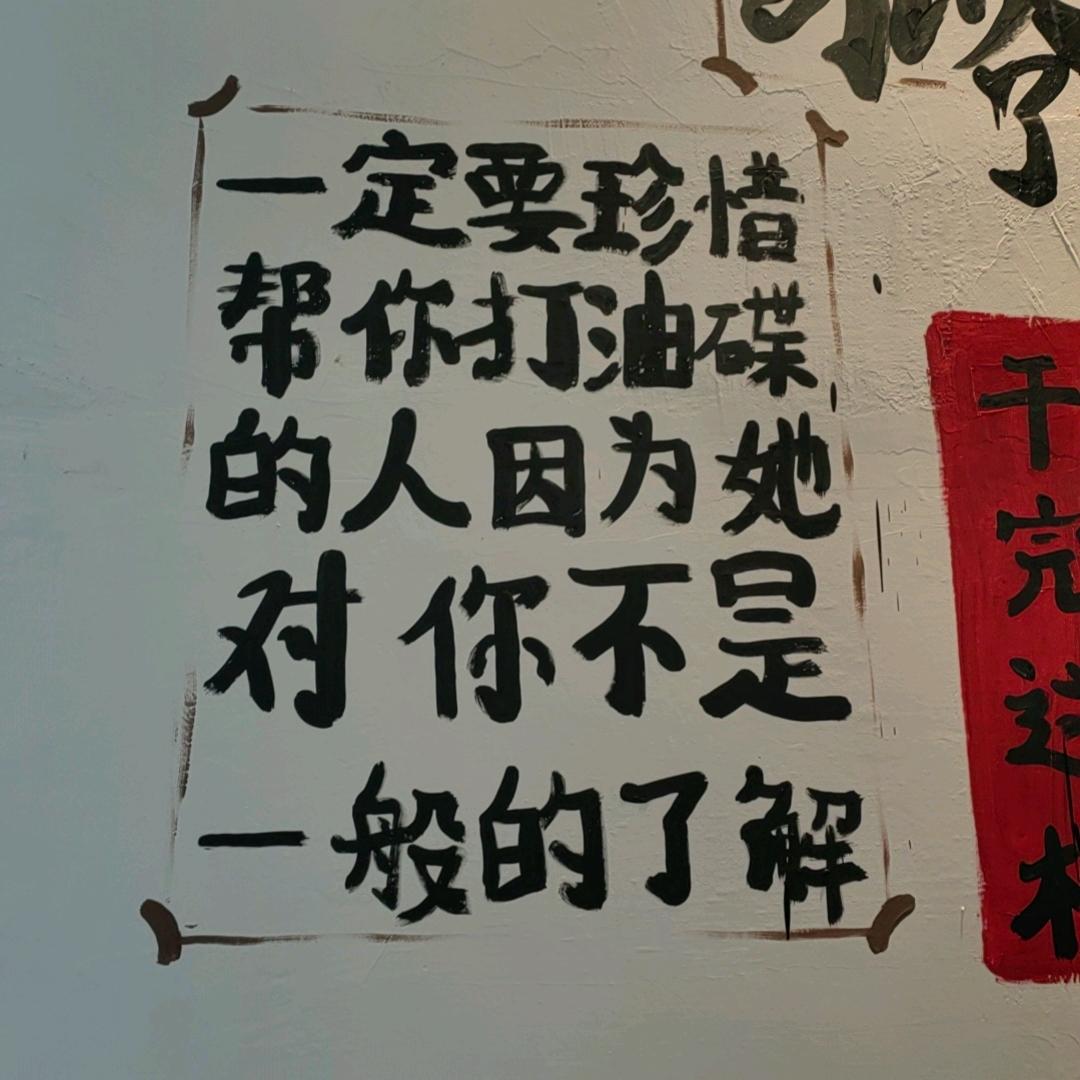 一定要珍惜
帮你打油碟
的人因为她
对你不是
一般的了解
了
干
完
这